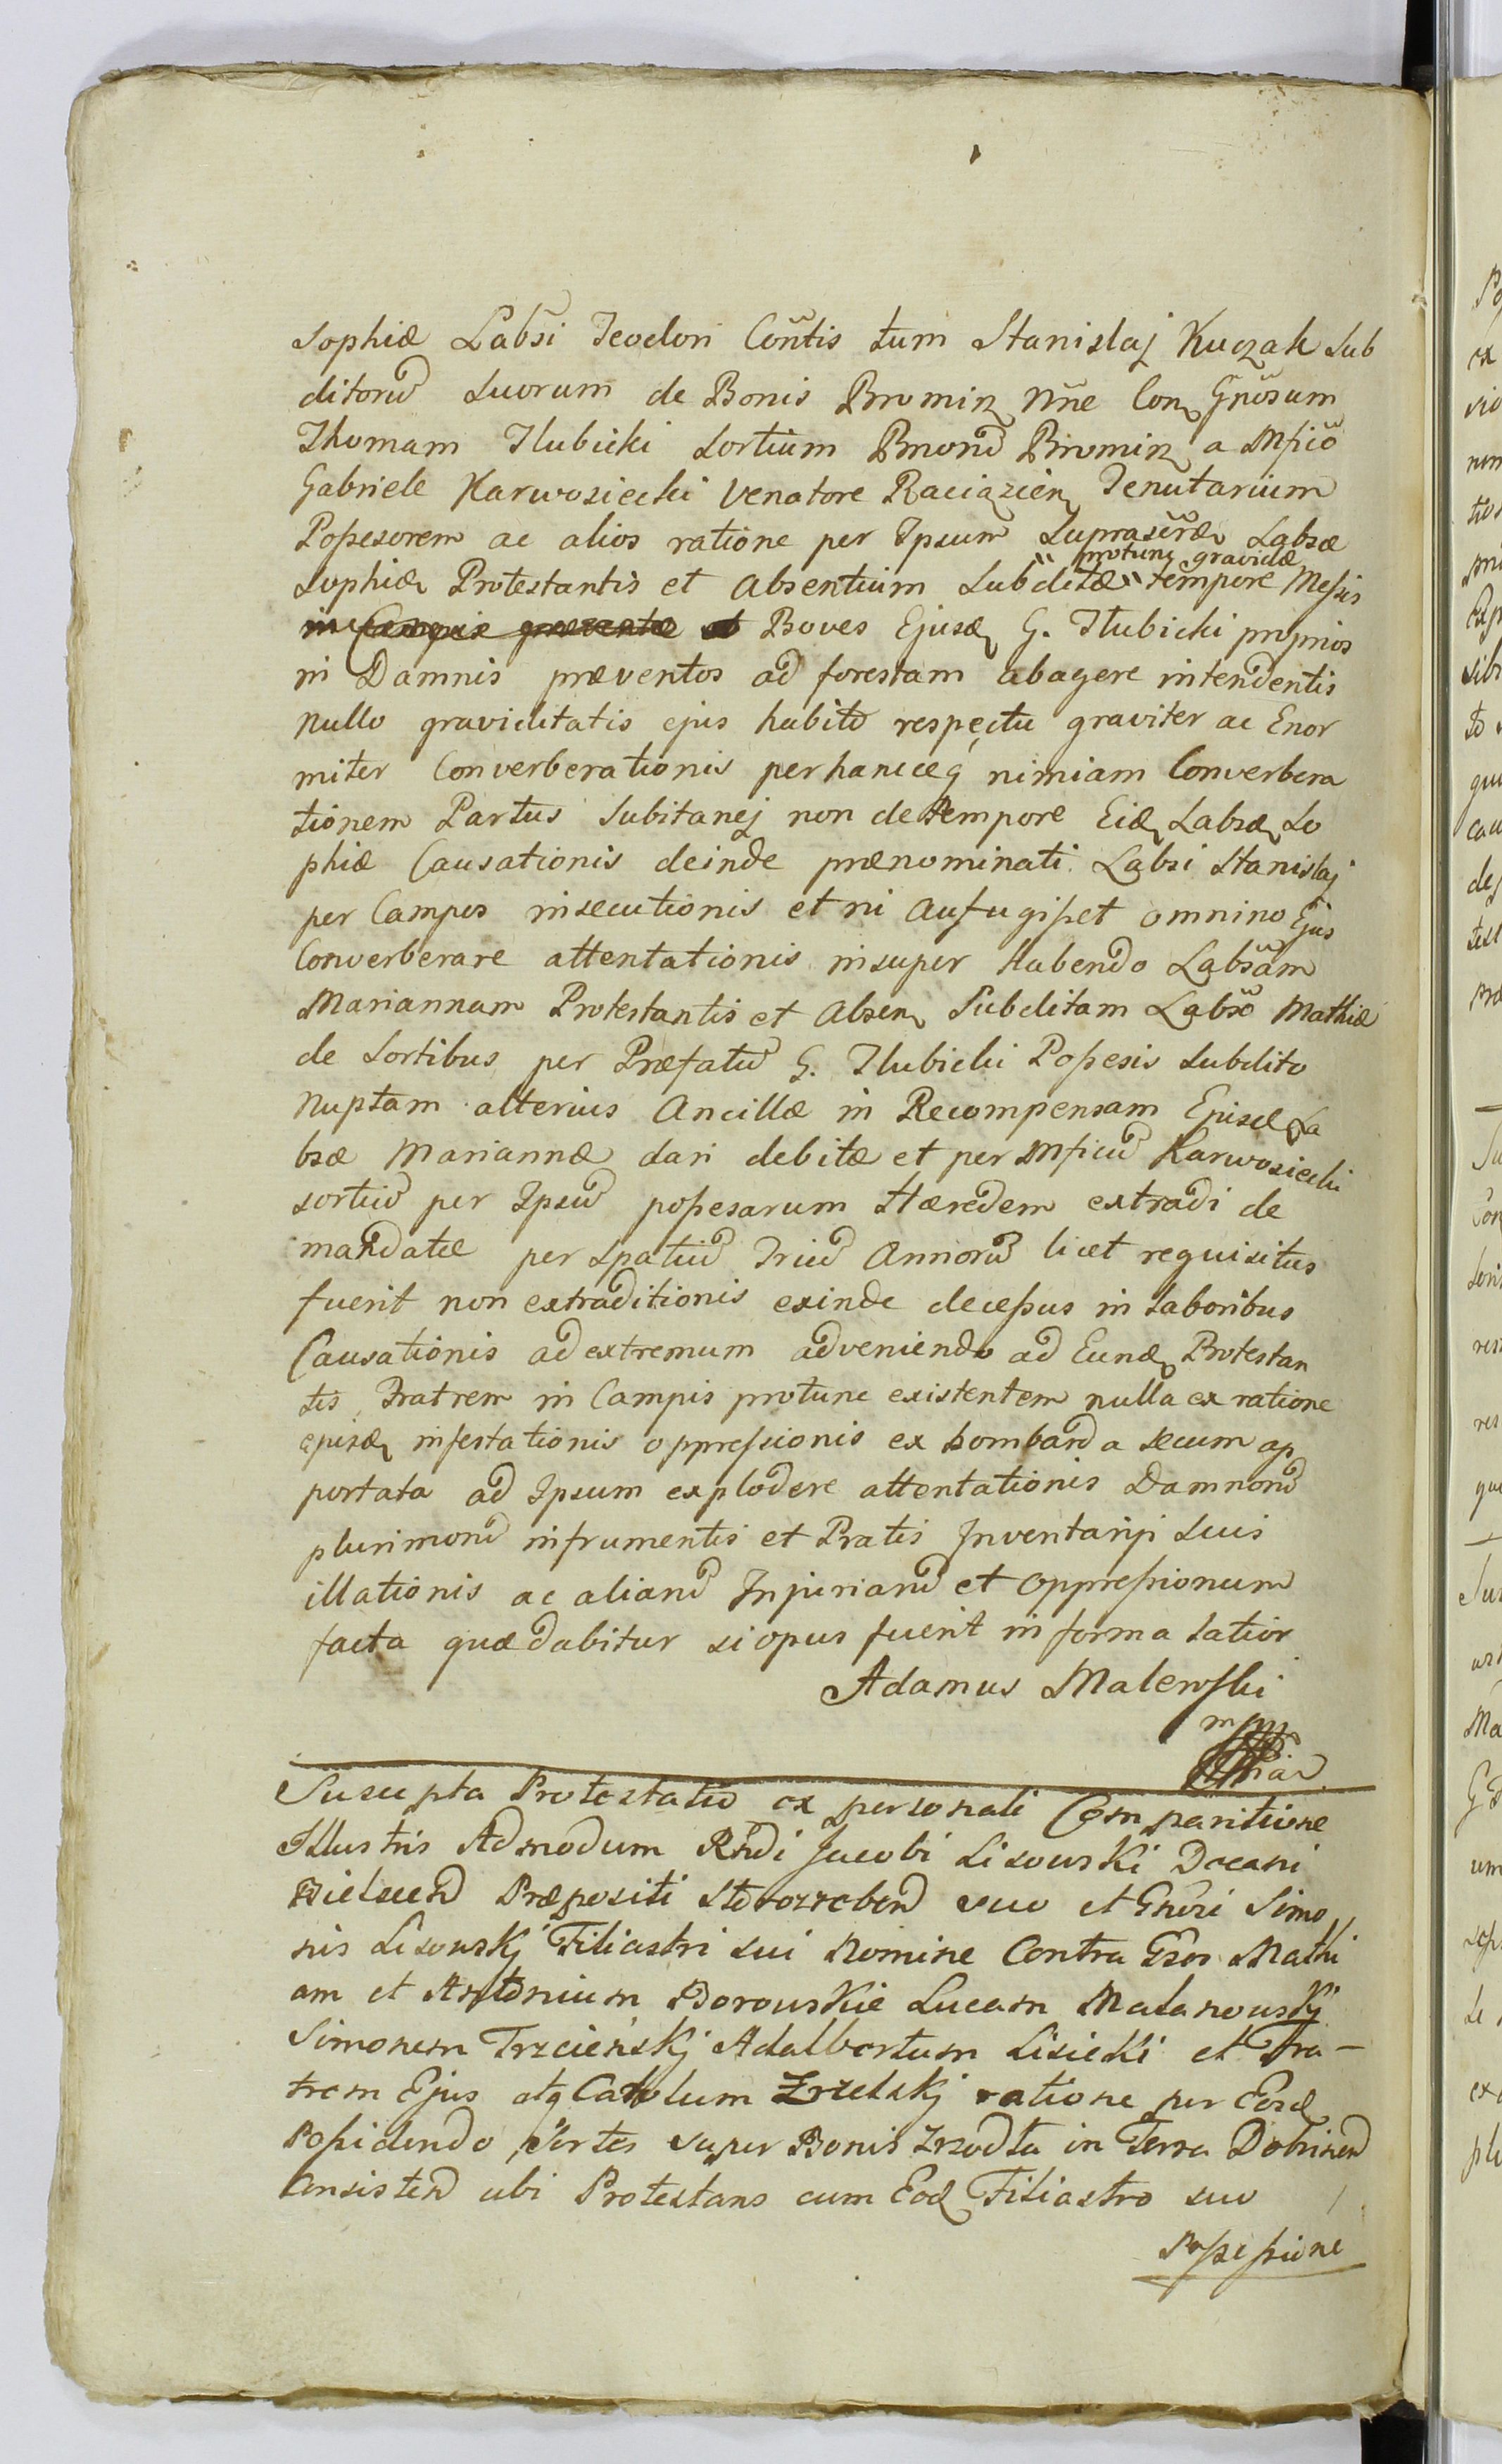 Sophiæ Labsi Teodori Contis tum Stanislaj Kuczak Sub
ditorū Suorum de Bonis Bromirz Nne Con Gnosum
Thomam Hubicki Sortium Bnonū Bromirz a Mfico
Gabriele Karwosiecki Venatore Raciązien Tenutarium
Possesorem ac alios ratione per Ipsum Suprascræ Labsæ
protunc gravidæ
Sophiæ Protestantis et absentium Subditæ tempore Messis
Boves Ejusd G. Hubicki proprios
in Damnis præventos ad forestam abagere intendentis
nullo graviditatis ejus habito respectu graviter ac Enor
miter Converberationis per hancceq nimiam Converbera
tionem Partus Subitanej non de tempore Eid Labsæ So
phiæ Causationis deinde prænominati Labsi Stanislaj
per Campos insecutionis et ni aufugisset omnino Ejus
Converberare attentationis insuper Habendo Labsam
Mariannam Protestantis et Absen Subditam Labso Mathiæ
de Sortibus per Præfatū G. Hubicki Possesis Subdito
Nuptam alterius Ancillæ in Recompensam Ejusd La
bsæ Mariannæ dari debitæ et per Mficū Karwosiecki
sortiū per Ipsū possesarum Hæredem extradi de
mandatæ per Spatiū Triū Annorū licet requisitus
fuerit non extraditionis exinde decessus in laboribus
Causationis ad extremum adveniendo ad Eund Protestan
tis Fratrem in Campis protunc existentem nulla ex ratione
ejusd infestationis oppressionis ex bombarda secum ap
portata ad Ipsum explodere attentationis Damnorū
plurimorū in frumentis et Pratis Inventarÿ Suis
illationis ac aliarū Injuriarū et Oppressionum
facta quæ dabitur si opus fuerit in forma latior
Adamus Malewski
mpp
Suscepta Protestatio ex personali Comparitione
Illustris Admodum Rndi Jacobi Lisowski Decani
Bielscen Præpositi Starozreben suo et Gnosi Simo
nis Lisowskj Filiastri sui Nomine Contra Gsos Mathi
am et Antonium Borowskie Lucam Malanowskj
Simonem Trzcińskj Adalbertum Lisicki et Fra-
trem Ejus atq Carolum Zrzelskj ratione per Eosd
Possidendo Sortes super Bonis Zrzodła in Terra Dobrinen
Consisten ubi Protestans cum Eod Filiastro suo
Possessione